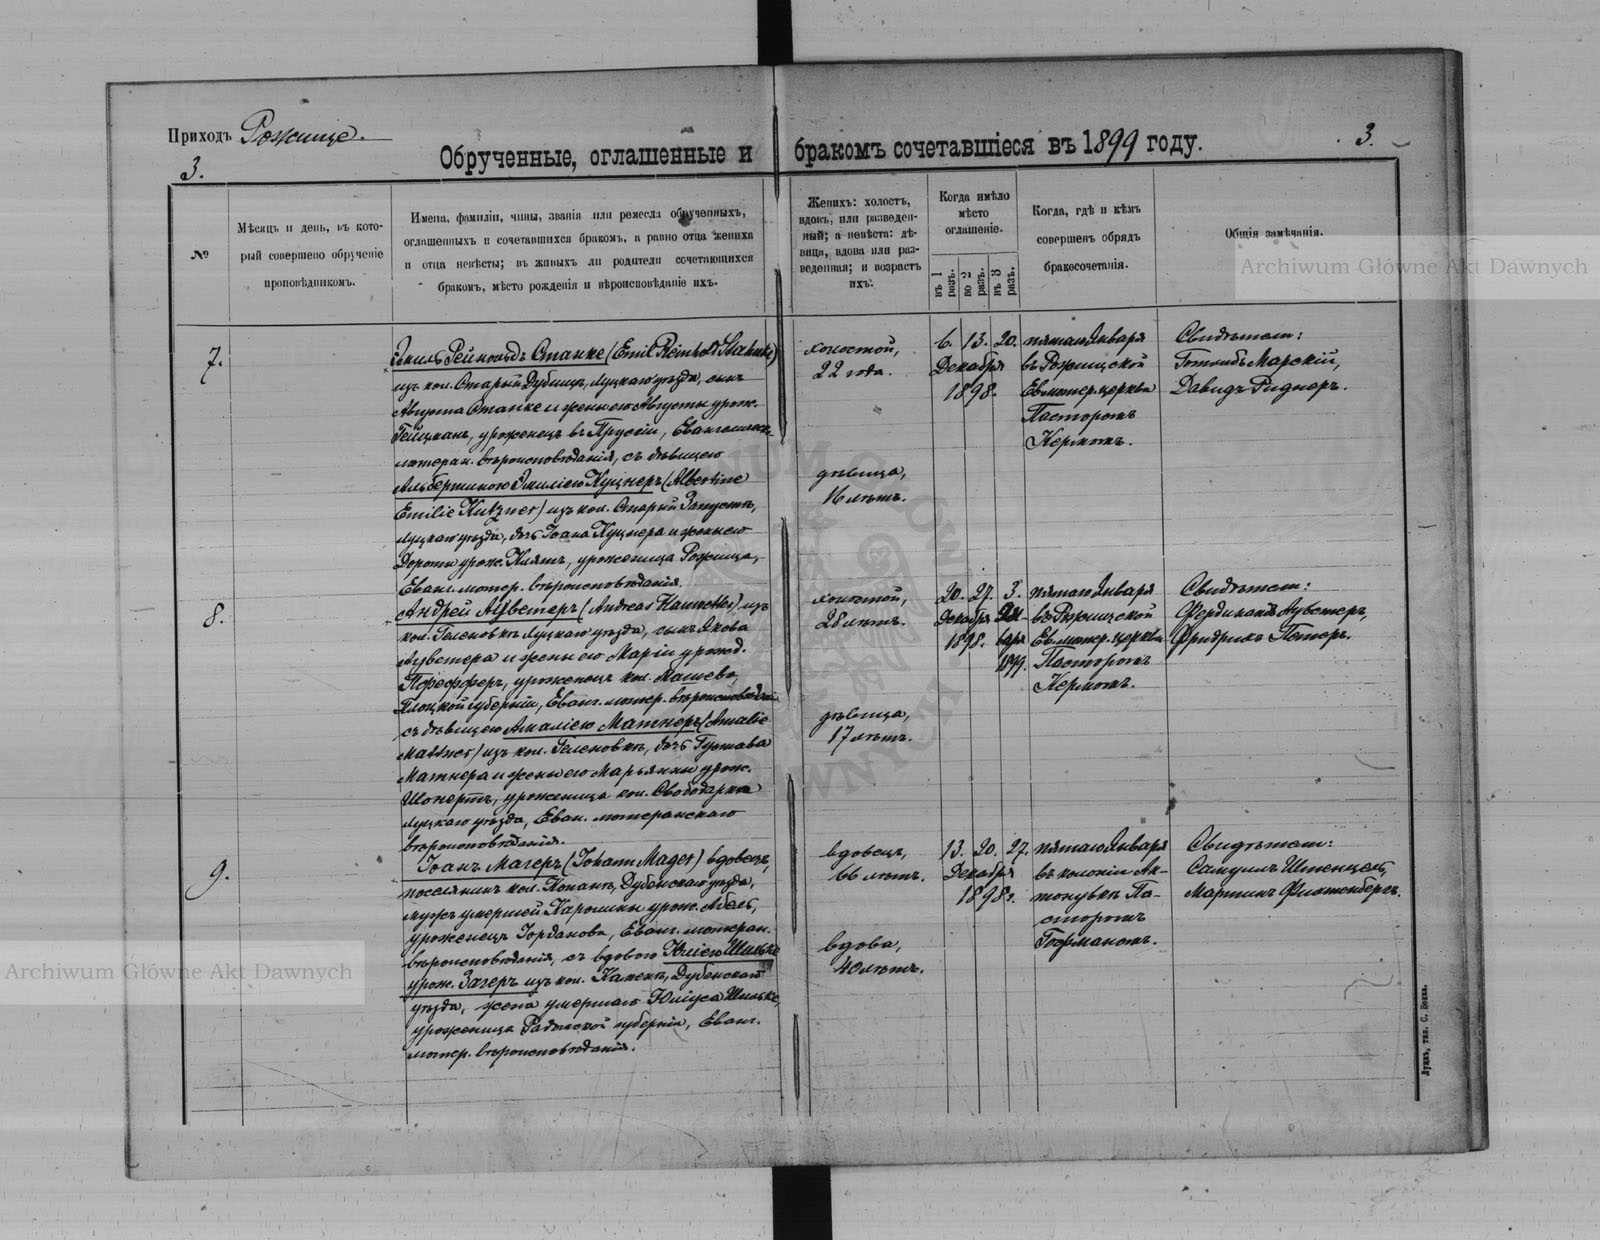 Приходъ Рожище.
3.
3.
Обрученные, оглашенные и бракомъ сочетавшіеся въ 1899 году.
№
Мѣсяцъ и день, въ кото-
рый совершено обрученіе
проповѣдникомъ.
Имена, фамиліи, чины, званія или ремесла обрученныхъ,
оглашенныхъ и сочетавшихся бракомъ, а равно отца жениха
и отца невѣсты; въ живыхъ ли родители сочетающихся
бракомъ, мѣсто рожденія и вѣроисповѣданіе ихъ.
Женихъ: холостъ,
вдовъ, или разведен-
ный; а невѣста: дѣ-
вица, вдова или раз-
веденная; и возрастъ
ихъ.
Когда имѣло
мѣсто
оглашеніе.
въ 1 разъ.
во 2 разъ.
въ 3 разъ.
Когда, гдѣ и кѣмъ
совершенъ обрядъ
бракосочетанія.
Общія замѣчанія.
Archiwum Główne Akt Dawnych
7.
Эмиль Рейнольдъ Станке (Emil Reinhold Stahnke)
изъ кол. Старый Дубищъ, Луцкаго уѣзда, сынъ
Августа Станке и жены его Августы урож.
Гейцманъ, уроженецъ въ Прусіи, Евангелическ.
лютеран. вѣроисповѣданія, съ дѣвицею
Альбертиною Эмиліею Куцнеръ (Albertine
Emilie Kutzner) изъ кол. Старый Запустъ,
Луцкаго уѣзда, дочь Іоана Куцнера и жены его
Дороты урож. Клятъ, уроженица Рожища,
Еванг. лютер. вѣроисповѣданія.
холостой,
22 года.
дѣвица,
16 лѣтъ.
6. 13. 20.
Декабря
1898.
пятаго Января
въ Рожищской
Ев. лютер. церкви
Пасторомъ
Кермомъ.
Свидѣтели:
Готлибъ Марскій,
Давидъ Риднеръ.
8.
Андрей Ауветеръ (Andreas Hauwetter) изъ
кол. Геленовкѣ Луцкаго уѣзда, сынъ Якова
Ауветера и жены его Маріи урожд.
Пфефферъ, уроженецъ кол. Машево,
Плоцкой губерніи, Еванг. лютер. вѣроисповѣдан.
съ дѣвицею Амаліею Матнеръ (Amalie
Mattner) изъ кол. Геленовкѣ, дочь Густава
Матнера и жены его Марьянны урож.
Шонертъ, уроженица кол. Свободарка
Луцкаго уѣзда, Еван. лютеранскаго
вѣроисповѣданія.
холостой,
28 лѣтъ.
дѣвица,
17 лѣтъ.
20. 27. 3.
Декабря Ян-
1898. варя
1899.
пятаго Января
въ Рожищской
Ев. лютер. церкви
Пасторомъ
Кермомъ.
Свидѣтели:
Фердинандъ Ауветеръ,
Фридрихъ Петеръ.
9.
Іоанъ Магеръ (Johann Mager) вдовецъ,
поселянинъ кол. Копанъ, Дубенскаго уѣзда,
мужъ умершей Каролины урож. Абель,
уроженецъ Іорданова, Еванг. лютеран.
вѣроисповѣданія, съ вдовою Юліею Шильке
урож. Загеръ изъ кол. Каменъ, Дубенскаго
уѣзда, жена умершаго Юліуса Шильке,
уроженица Радомской губерніи, Еванг.
лютер. вѣроисповѣданія.
вдовецъ,
66 лѣтъ.
вдова,
40 лѣтъ.
13. 20. 27.
Декабря
1898 г.
пятаго Января
въ колоніи Ан-
тонувкѣ Па-
сторомъ
Гофманомъ.
Свидѣтели:
Самуилъ Штенцель,
Мартинъ Фихтенбергъ.
Archiwum Główne Akt Dawnych
Луцкъ, тип. С. Бокка.